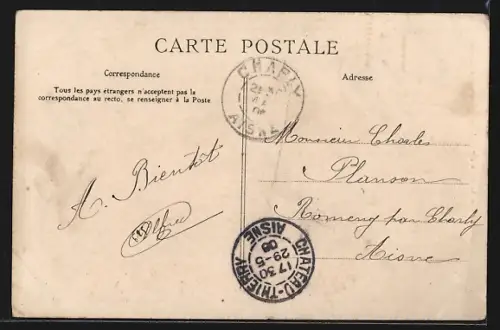 CARTE POSTALE
Correspondance
Adresse
Tous les pays étrangers n'acceptent pas la
correspondance au recto, se renseigner à la Poste
CHARLY
AISNE
A. Bientot
Monsieur Charles
Planson
Romeny par Charly
Aisne
CHATEAU-THIERRY
17 30
29-5
08
AISNE